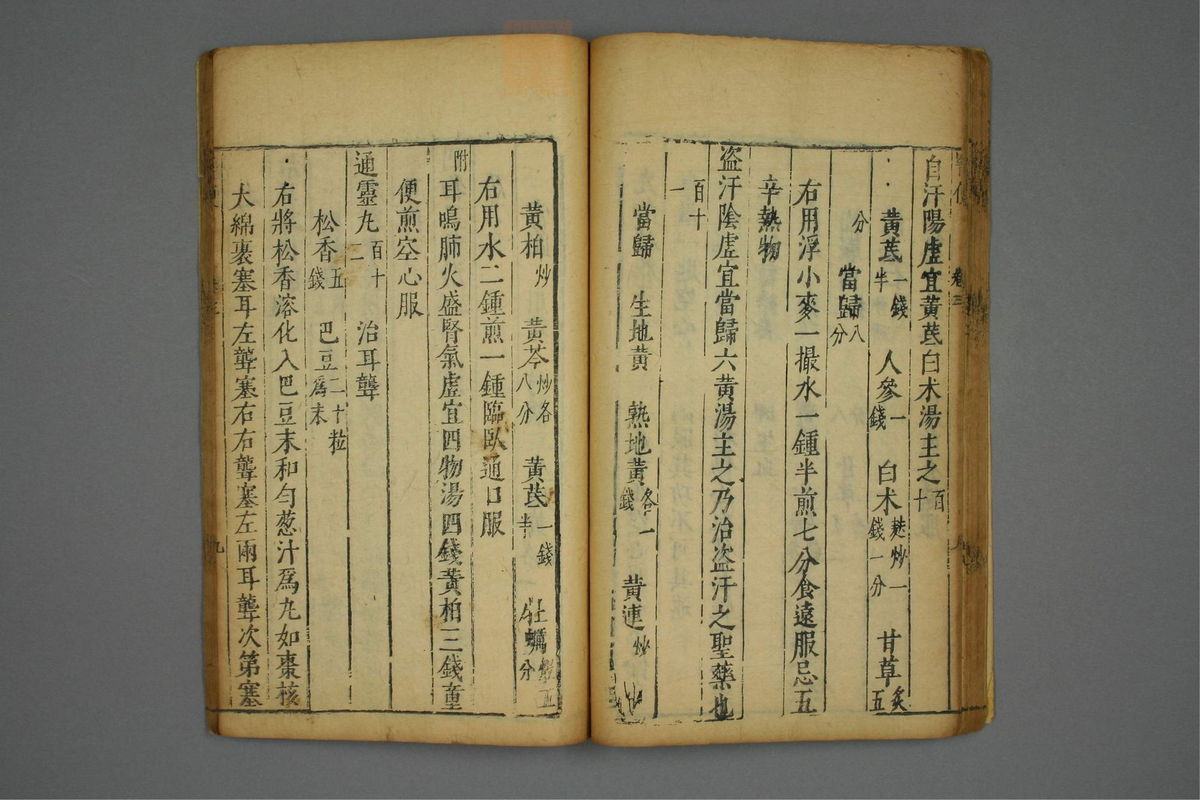 自汗陽虛宜黃芪白术湯主之百十
黃芪一錢半 人參一錢 白术麩炒一錢一分 甘草炙五
分 當歸八分
右用浮小麥一撮水一鍾半煎七分食遠服忌五
辛熱物
盜汗陰虛宜當歸六黃湯主之乃治盜汗之聖藥也
百十一
當歸 生地黃 熟地黃各一錢 黃連炒
黃柏炒 黃芩炒各八分 黃芪一錢半 牡蠣煆五分
右用水二鍾煎一鍾臨臥通口服
附耳鳴肺火盛腎氣虛宜四物湯四錢黃柏三錢童
便煎空心服
通靈丸百十二 治耳聾
松香五錢 巴豆二十粒爲末
右將松香溶化入巴豆末和勻葱汁爲丸如棗核
大綿裹塞耳左聾塞右右聾塞左兩耳聾次第塞
卷三
九